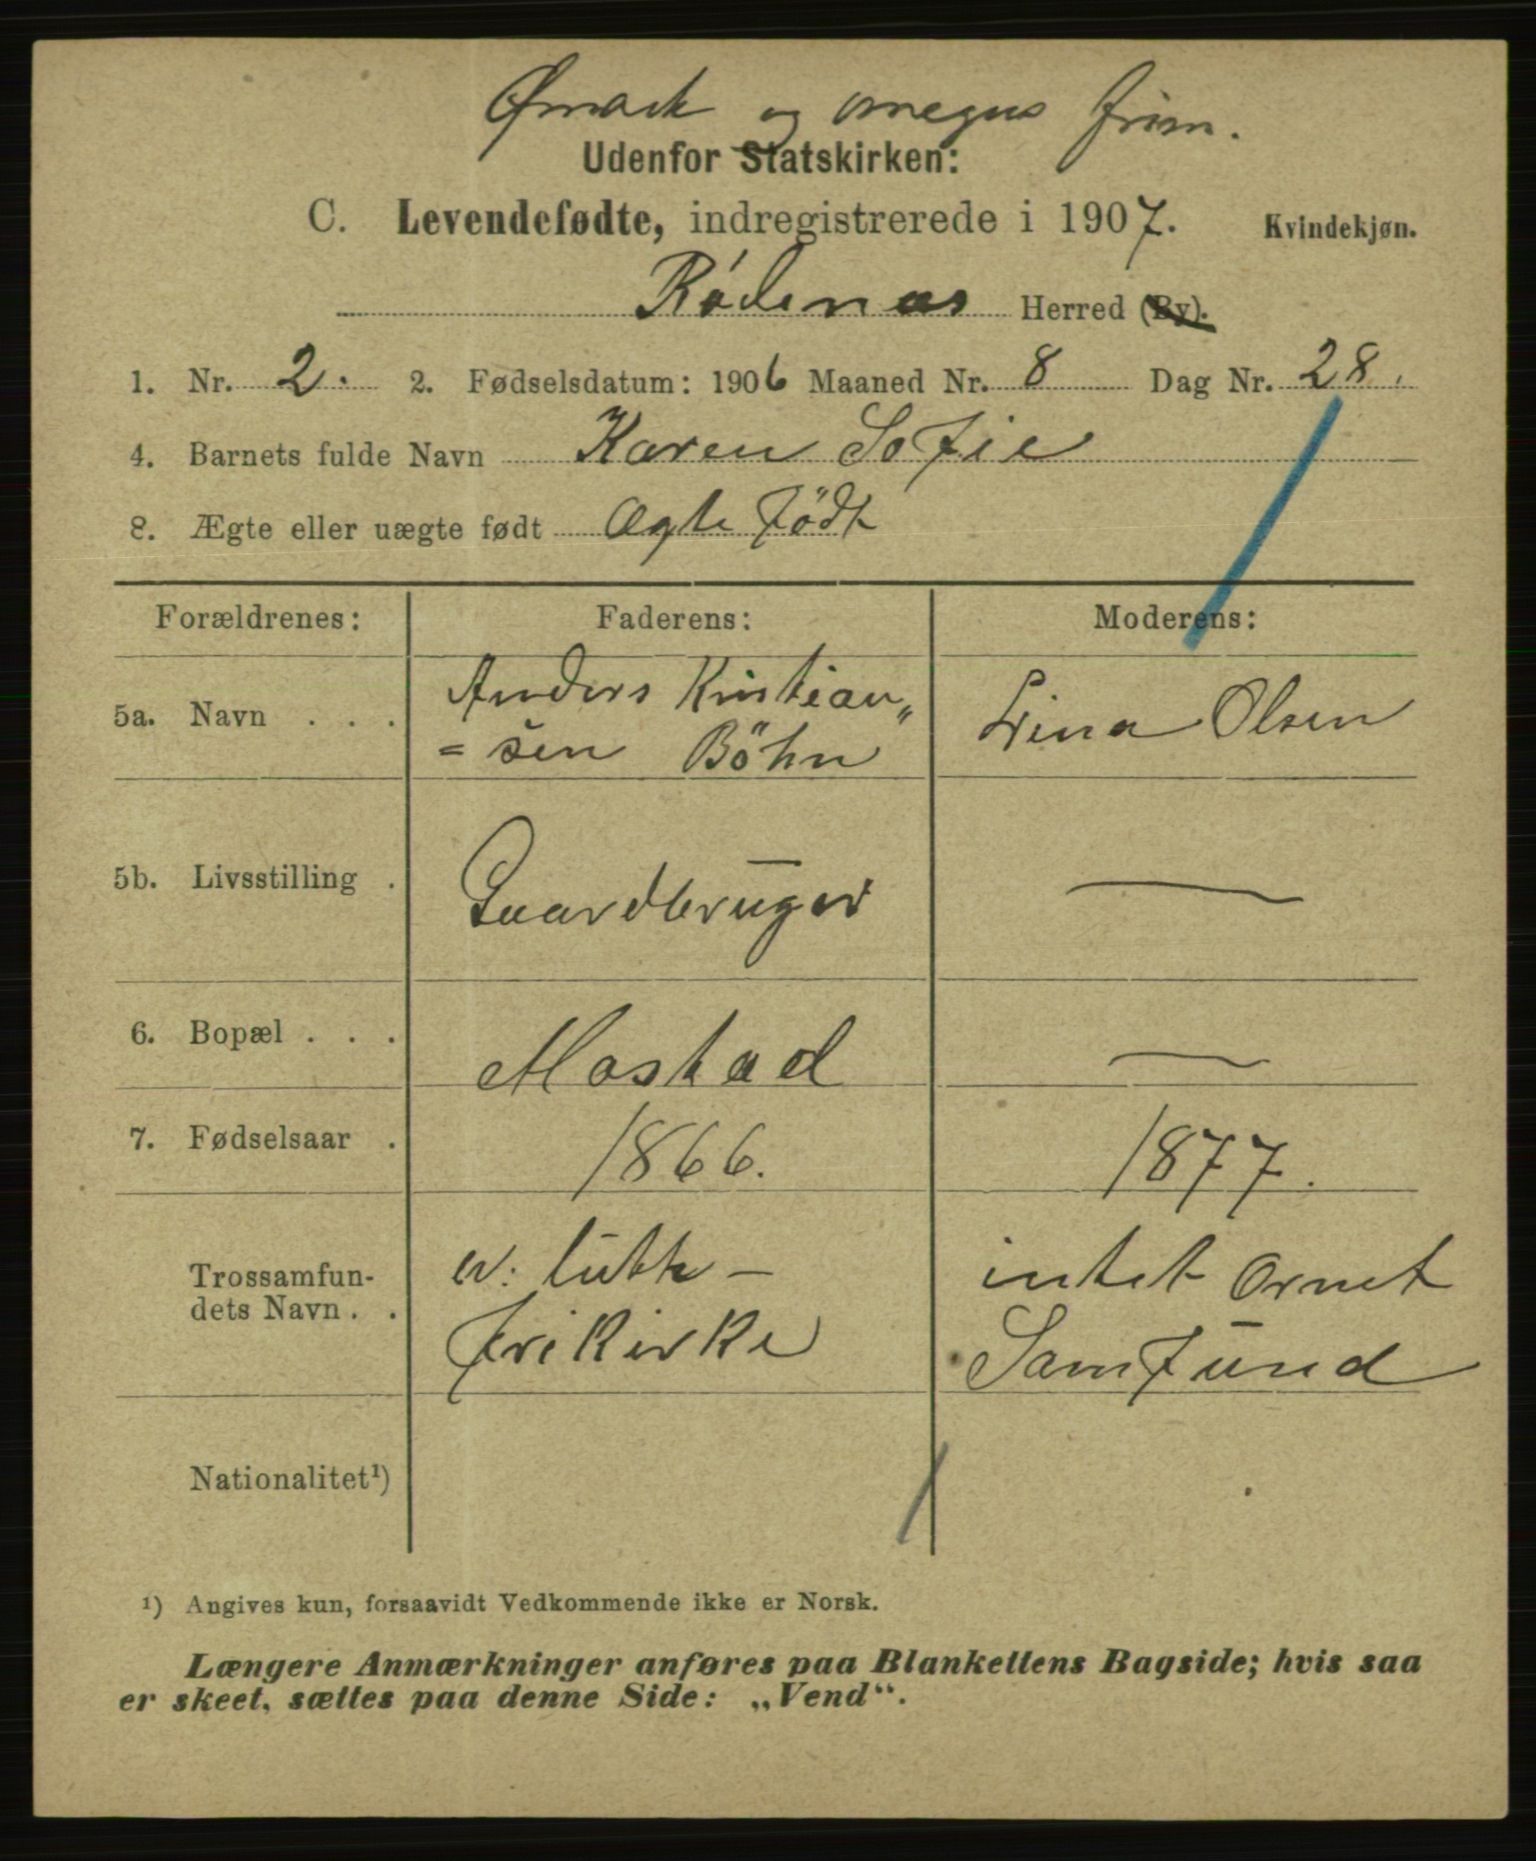 Ømark og omegns frim.
Udenfor Statskirken:
C. Levendefødte, indregistrerede i 1907. Kvindekjøn.
Rødenes Herred (By).
1. Nr. 2. 2. Fødselsdatum: 1906 Maaned Nr. 8 Dag Nr. 28.
4. Barnets fulde Navn Karen Sofie
8. Ægte eller uægte født Ægte född
Forældrenes: Faderens: Moderens:
5a. Navn . . . Anders Kristian„ Lina Olsen
= sen Böhn
5b. Livsstilling . Gaardbruger —
6. Bopæl . . . Mostad —
7. Fødselsaar . 1866. 1877.
Trossamfun- ev: luth — intet ornet
dets Navn . . frikirke Samfund
Nationalitet¹)
¹) Angives kun, forsaavidt Vedkommende ikke er Norsk.
Længere Anmærkninger anføres paa Blankettens Bagside; hvis saa
er skeet, sættes paa denne Side: „Vend“.